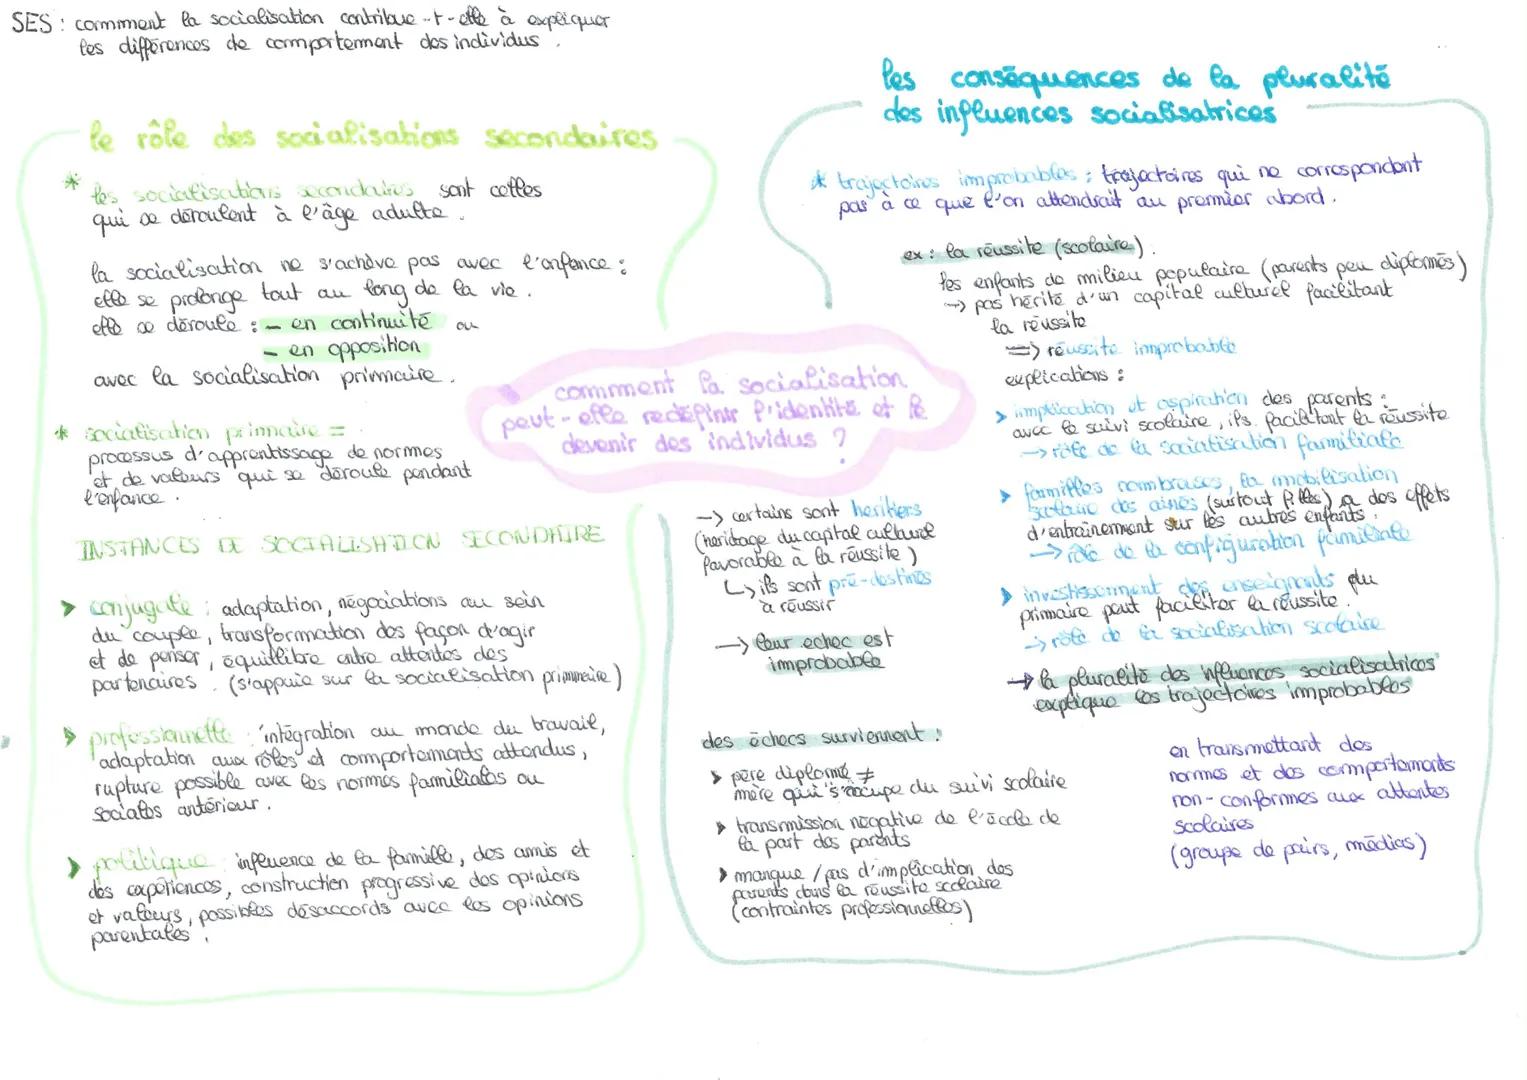 SES : comment la socialisation contribue-t-elle à expliquer
les différences de comportement des individus.
le rôle des socialisations secondaires
* les socialisations secondaires sont celles
qui se déroulent à l'âge adulte.
la socialisation ne s'achève pas avec l'enfance :
elle se prolonge tout au long de la vie.
elle se déroule : - en continuité ou
- en opposition
avec la socialisation primaire.
* socialisation primaire =
processus d'apprentissage de normes
et de valeurs qui se déroule pendant
l'enfance.
INSTANCES DE SOCIALISATION SECONDAIRE
➤ conjugale : adaptation, négociations au sein
du couple, transformation des façon d'agir
et de penser, équilibre entre attentes des
partenaires. (s'appuie sur la socialisation primaire)
➤ professionnelle : intégration au monde du travail,
adaptation aux rôles et comportements attendus,
rupture possible avec les normes familiales ou
sociales antérieur.
➤ politique : influence de la famille, des amis et
des expériences, construction progressive des opinions
et valeurs, possibles désaccords avec les opinions
parentales.
comment la socialisation
peut-elle redéfinir l'identité et le
devenir des individus ?
les conséquences de la pluralité
des influences socialisatrices
* trajectoires improbables : trajectoires qui ne correspondent
pas à ce que l'on attendrait au premier abord.
ex : la réussite (scolaire).
les enfants de milieu populaire (parents peu diplômés)
→ pas hérité d'un capital culturel facilitant
la réussite
⇒ réussite improbable
explications :
➤ implication et aspiration des parents :
avec le suivi scolaire, ils facilitent la réussite
→ rôle de la socialisation familiale
➤ familles nombreuses, la mobilisation
scolaire des aînés (surtout filles) a des effets
d'entraînement sur les autres enfants.
→ rôle de la configuration familiale
➤ investissement des enseignants du
primaire peut faciliter la réussite.
→ rôle de la socialisation scolaire
→ la pluralité des influences socialisatrices
explique les trajectoires improbables
→ certains sont heritiers
(heritage du capital culturel
favorable à la réussite)
↳ ils sont pré-destinés
à réussir
→ leur echec est
improbable
des échecs surviennent :
➤ père diplomé ≠
mère qui s'occupe du suivi scolaire
➤ transmission négative de l'école de
la part des parents
➤ manque / pas d'implication des
parents dans la réussite scolaire
(contraintes professionnelles)
en transmettant des
normes et des comportements
non-conformes aux attentes
scolaires
(groupe de pairs, médias)